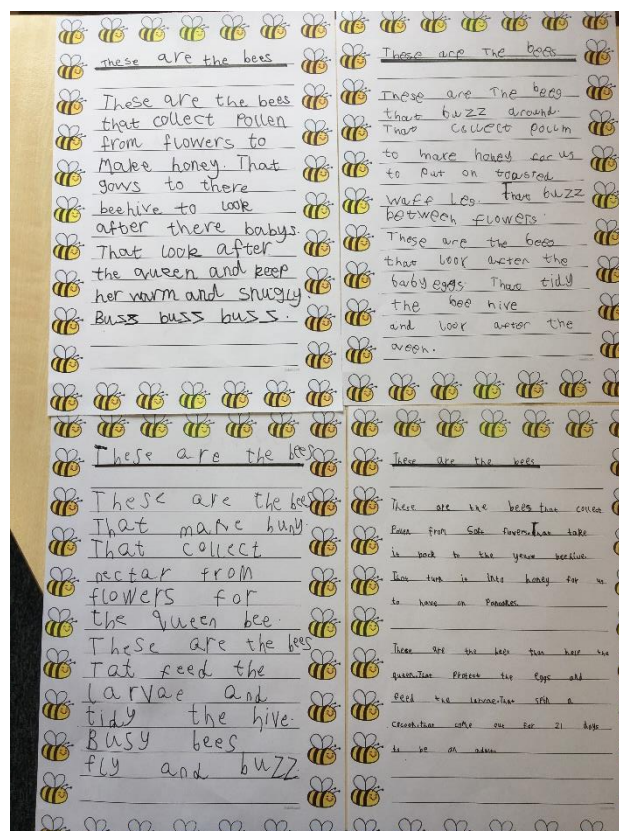 These are the bees
These are the bees
that collect Pollen
from flowers to
Make honey. That
gows to there
beehive to look
after there babys.
That look after
the queen and keep
her warm and snugly.
Buss buss buss.
These are The bees
These are The bees
that buzz around.
That collect pollin
to make honey for us
to put on toasted
waff les. That buzz
between flowers.
These are the bees
that look after the
baby eggs. That tidy
the bee hive
and look after the
queen.
These are the bees
These are the bees
That make huny.
That collect
nectar from
flowers for
the queen bee.
These are the bees
Tat feed the
larvae and
tidy the hive.
Busy bees
fly and buzz
These are the bees
These are the bees that collect
from Soft That take
back to the beehive.
That turn into honey for us
to have on Pancakes.
These are the bees that help the
queen. That Protect the eggs and
Feed the larvae. That spin a
cocoon. that come out For 21 days
to be an